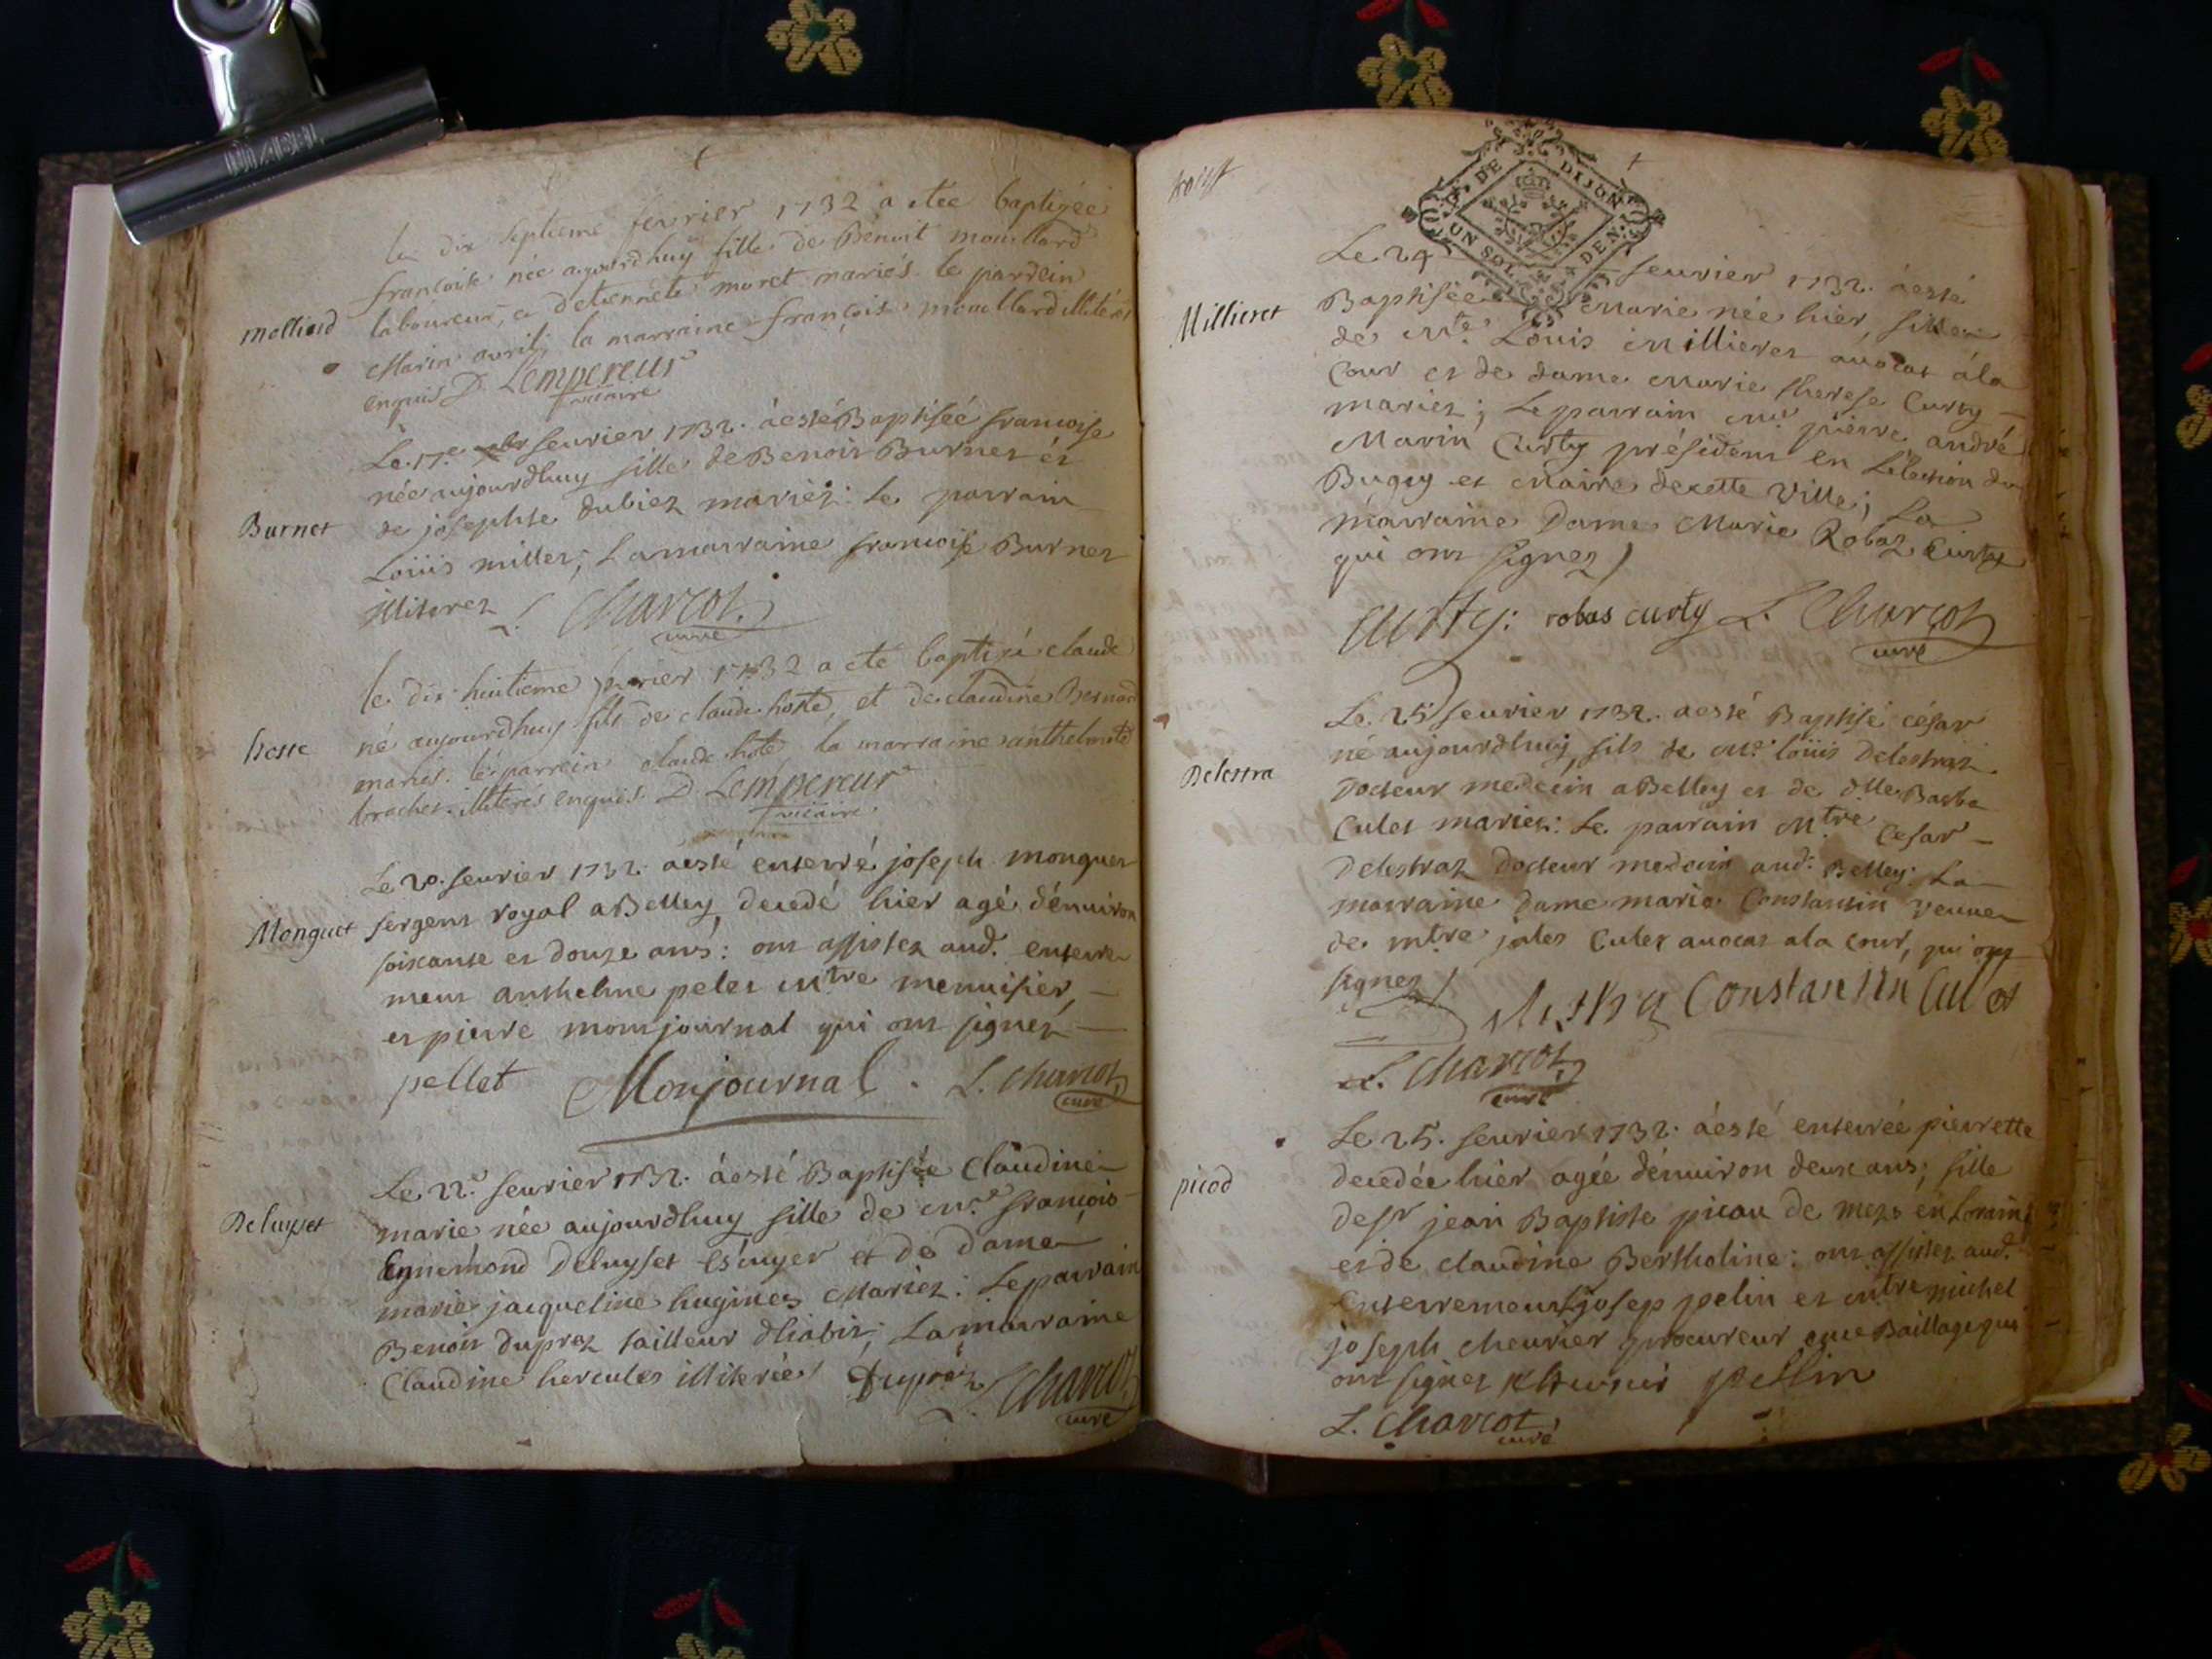 DIABL
le dix septieme fevrier 1732 a étée baptizée
francoise née aujourdhuy fille de Benoit mouillard
molliard
laboureur, et detiennette moret mariés. le parrein
Marin avril, la marraine françoise mouillard illiterés
enquis D. Lempereur
vicaire
Le 17e feurier 1732. áesté Baptiséé francoise
née aujourdhuy fille de Benoit Burnet et
Burnet
de josephte dubiez mariez: le parrain
Loüis millet; Lamarraine francoise Burnet
illiterez L. Charcot
curé
le dix huitieme fevrier 1732 a ete baptizé claude
né aujourdhuy fils de claude hoste, et de claudine Bernard
hoste
mariés. le parrein claude hote la marraine anthelmete
brachet. illiterés enquis. D Lempereur
vicaire
Le 20. feurier 1732. áesté enterré joseph monguet
Monguet
sergent royal aBelley, decedé hier agé dénuiron
soixante et douze ans: ont assistez aud. enterre
ment anthelme pelet mtre menuisier, —
et pierre monjournal qui ont signéz —
pellet Monjournal. L. Charcot
curé
Le 22e feurier 1732. áesté Baptisée Claudine
marie née aujourdhuy fille de mre françois
Deluyset
Eynémond Deluyset Escuyer et de dame
marie jacqueline hugines Mariez: Leparrain
Benoit dupraz tailleur dhabit; Lamarraine
Claudine hercules illiterée Dupraz L. Charcot
curé
DE DIJON
UN SOL DEN.
Le 24 feurier 1732. áesté
Baptisée Marie née hier, fille
Millieret
de Mre Louis Millieret auocat àla
Cour et de dame Marie therese Curty —
mariez; Leparrain mre pierre andré
Marin Curty président en Lélection du
Bugey et Maire decette Ville; La
marraine Dame Marie Robaz Curty
qui ont signez
curty: robas curty L. Charcot
curé
Le 25 feurier 1732. aesté Baptisé césar
né aujourdhuy, fils de mre loüis Delestraz
Delestra
Docteur medecin aBelley et de dlle Barbe
Culet mariez: Le parrain Mtre Cesar —
Delestraz docteur medecin aud. Belley. La
marraine Dame marie Constantin veuue
de mtre jules Culet auocat ala Cour, qui ont
signez
Constantin Culet
L. Charcot
curé
Le 25. feurier 1732. áesté enterrée pierrette
decedée hier agée dénuiron deux ans; fille
picod
de sr jean Baptiste picau de mets en Loraine
et de claudine Bertholine: ont assistez aud.
Enterrement josep pelin et mtre michel
joseph cheurier procureur au Baillage qui
ont signez pellin
L. Charcot
curé